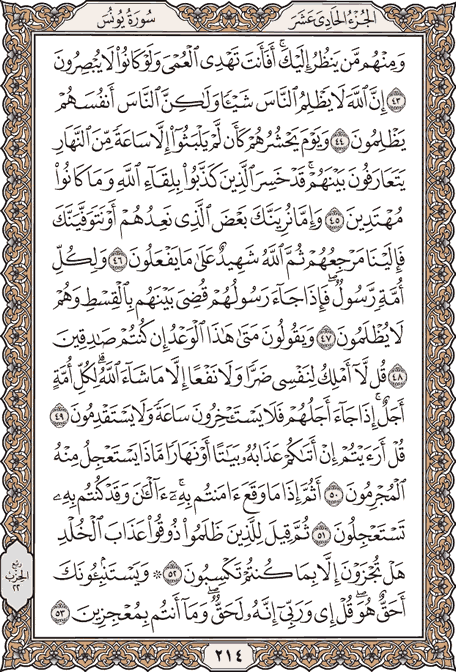 الجزء الحادي عشر سورة يونس
وَمِنْهُم مَّن يَنظُرُ إِلَيْكَ ۚ أَفَأَنتَ تَهْدِى ٱلْعُمْىَ وَلَوْ كَانُوا۟ لَا يُبْصِرُونَ
٤٣ إِنَّ ٱللَّهَ لَا يَظْلِمُ ٱلنَّاسَ شَيْـًٔا وَلَـٰكِنَّ ٱلنَّاسَ أَنفُسَهُمْ
يَظْلِمُونَ ٤٤ وَيَوْمَ يَحْشُرُهُمْ كَأَن لَّمْ يَلْبَثُوٓا۟ إِلَّا سَاعَةً مِّنَ ٱلنَّهَارِ
يَتَعَارَفُونَ بَيْنَهُمْ ۚ قَدْ خَسِرَ ٱلَّذِينَ كَذَّبُوا۟ بِلِقَآءِ ٱللَّهِ وَمَا كَانُوا۟
مُهْتَدِينَ ٤٥ وَإِمَّا نُرِيَنَّكَ بَعْضَ ٱلَّذِى نَعِدُهُمْ أَوْ نَتَوَفَّيَنَّكَ
فَإِلَيْنَا مَرْجِعُهُمْ ثُمَّ ٱللَّهُ شَهِيدٌ عَلَىٰ مَا يَفْعَلُونَ ٤٦ وَلِكُلِّ
أُمَّةٍ رَّسُولٌ ۖ فَإِذَا جَآءَ رَسُولُهُمْ قُضِىَ بَيْنَهُم بِٱلْقِسْطِ وَهُمْ
لَا يُظْلَمُونَ ٤٧ وَيَقُولُونَ مَتَىٰ هَـٰذَا ٱلْوَعْدُ إِن كُنتُمْ صَـٰدِقِينَ
٤٨ قُل لَّآ أَمْلِكُ لِنَفْسِى ضَرًّا وَلَا نَفْعًا إِلَّا مَا شَآءَ ٱللَّهُ ۗ لِكُلِّ أُمَّةٍ
أَجَلٌ ۚ إِذَا جَآءَ أَجَلُهُمْ فَلَا يَسْتَـْٔخِرُونَ سَاعَةً ۖ وَلَا يَسْتَقْدِمُونَ ٤٩
قُلْ أَرَءَيْتُمْ إِنْ أَتَىٰكُمْ عَذَابُهُۥ بَيَـٰتًا أَوْ نَهَارًا مَّاذَا يَسْتَعْجِلُ مِنْهُ
ٱلْمُجْرِمُونَ ٥٠ أَثُمَّ إِذَا مَا وَقَعَ ءَامَنتُم بِهِۦٓ ۚ ءَآلْـَٔـٰنَ وَقَدْ كُنتُم بِهِۦ
تَسْتَعْجِلُونَ ٥١ ثُمَّ قِيلَ لِلَّذِينَ ظَلَمُوا۟ ذُوقُوا۟ عَذَابَ ٱلْخُلْدِ
هَلْ تُجْزَوْنَ إِلَّا بِمَا كُنتُمْ تَكْسِبُونَ ٥٢ ۞ وَيَسْتَنۢبِـُٔونَكَ
أَحَقٌّ هُوَ ۖ قُلْ إِى وَرَبِّىٓ إِنَّهُۥ لَحَقٌّ ۖ وَمَآ أَنتُم بِمُعْجِزِينَ ٥٣
ربع
الحزب
٢٢
٢١٤